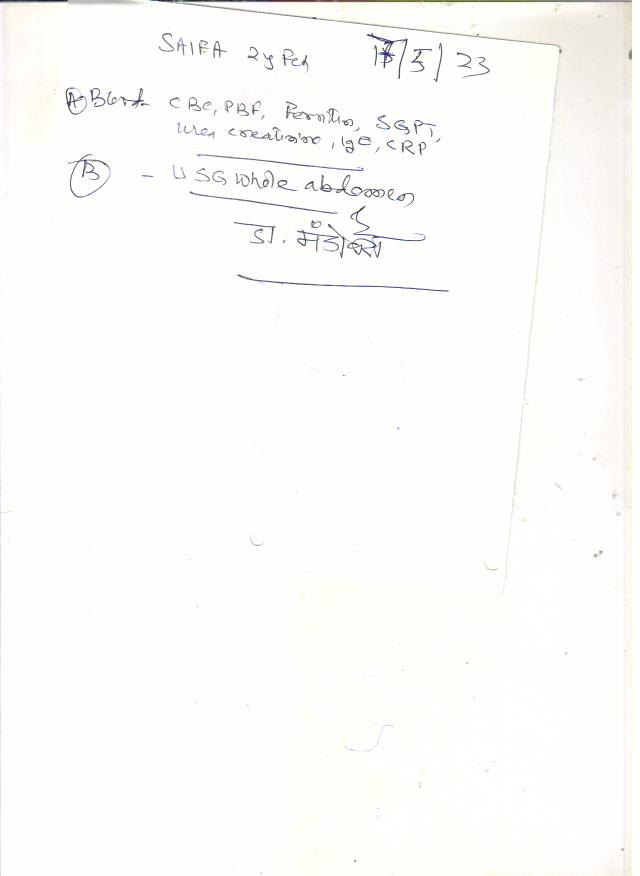 SAIFA 2y Feh 17/5/23
(A) Blood CBC, PBF, Ferritin, SGPT,
Urea creatinine, IgE, CRP
(B) - USG whole abdomen
डा.